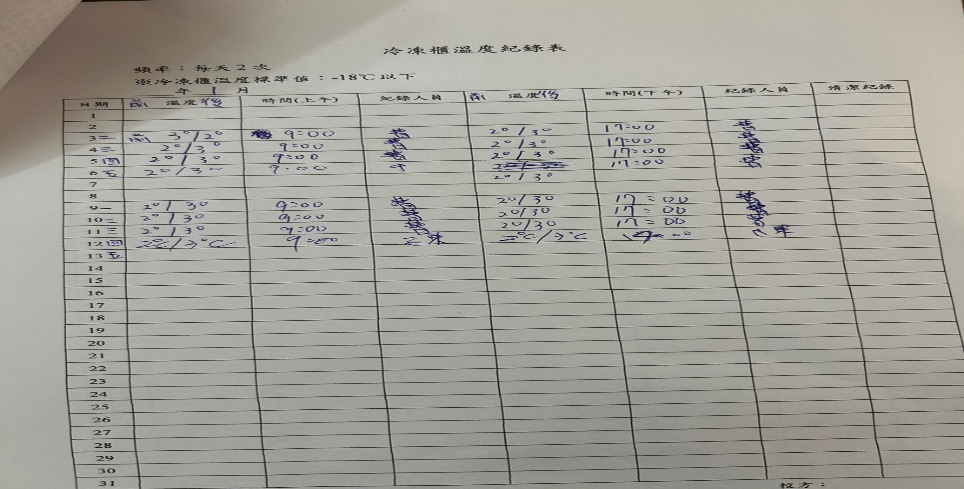 冷凍櫃溫度紀錄表
頻率：每天2次
※冷凍櫃溫度標準值：-18℃以下
年 1 月
日期 前 溫度 後 時間(上午) 紀錄人員 前 溫度 後 時間(下午) 紀錄人員 清潔紀錄
1
2
3 二 前 3°/2° 9:00 2°/3° 17:00
4 三 2°/3° 9:00 2°/3° 17:00
5 四 2°/3° 9:00 2°/3° 17:00
6 五 2°/3° 9:00 2°/3° 17:00
7
8
9 一 2°/3° 9:00 2°/3° 17:00
10 二 2°/3° 9:00 2°/3° 17:00
11 三 2°/3° 9:00 2°/3° 17:00
12 四 2℃/3℃ 9:00 2℃/3℃ 17:00
13 五
14
15
16
17
18
19
20
21
22
23
24
25
26
27
28
29
30
31
校方：